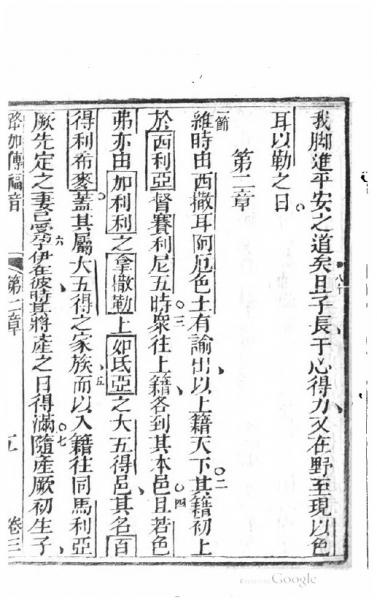 我脚進平安之道矣且子長于心得力又在野至現以色
八十
耳以勒之日
第二章
節
維時由西撒耳阿厄色土有諭出以上籍天下其籍初上
二
於西利亞督賽利尼五時眾往上籍各到其本邑且若色
三 四
弗亦由加利利之拿撒勒上如氐亞之大五得邑其名百
得利希麥蓋其屬大五得之家族而以入籍往同馬利亞
五
厥先定之妻已受孕伊在彼時其將產之日得滿隨產厥初生子
六 七
路加傳福音 第二章 卷三
Google